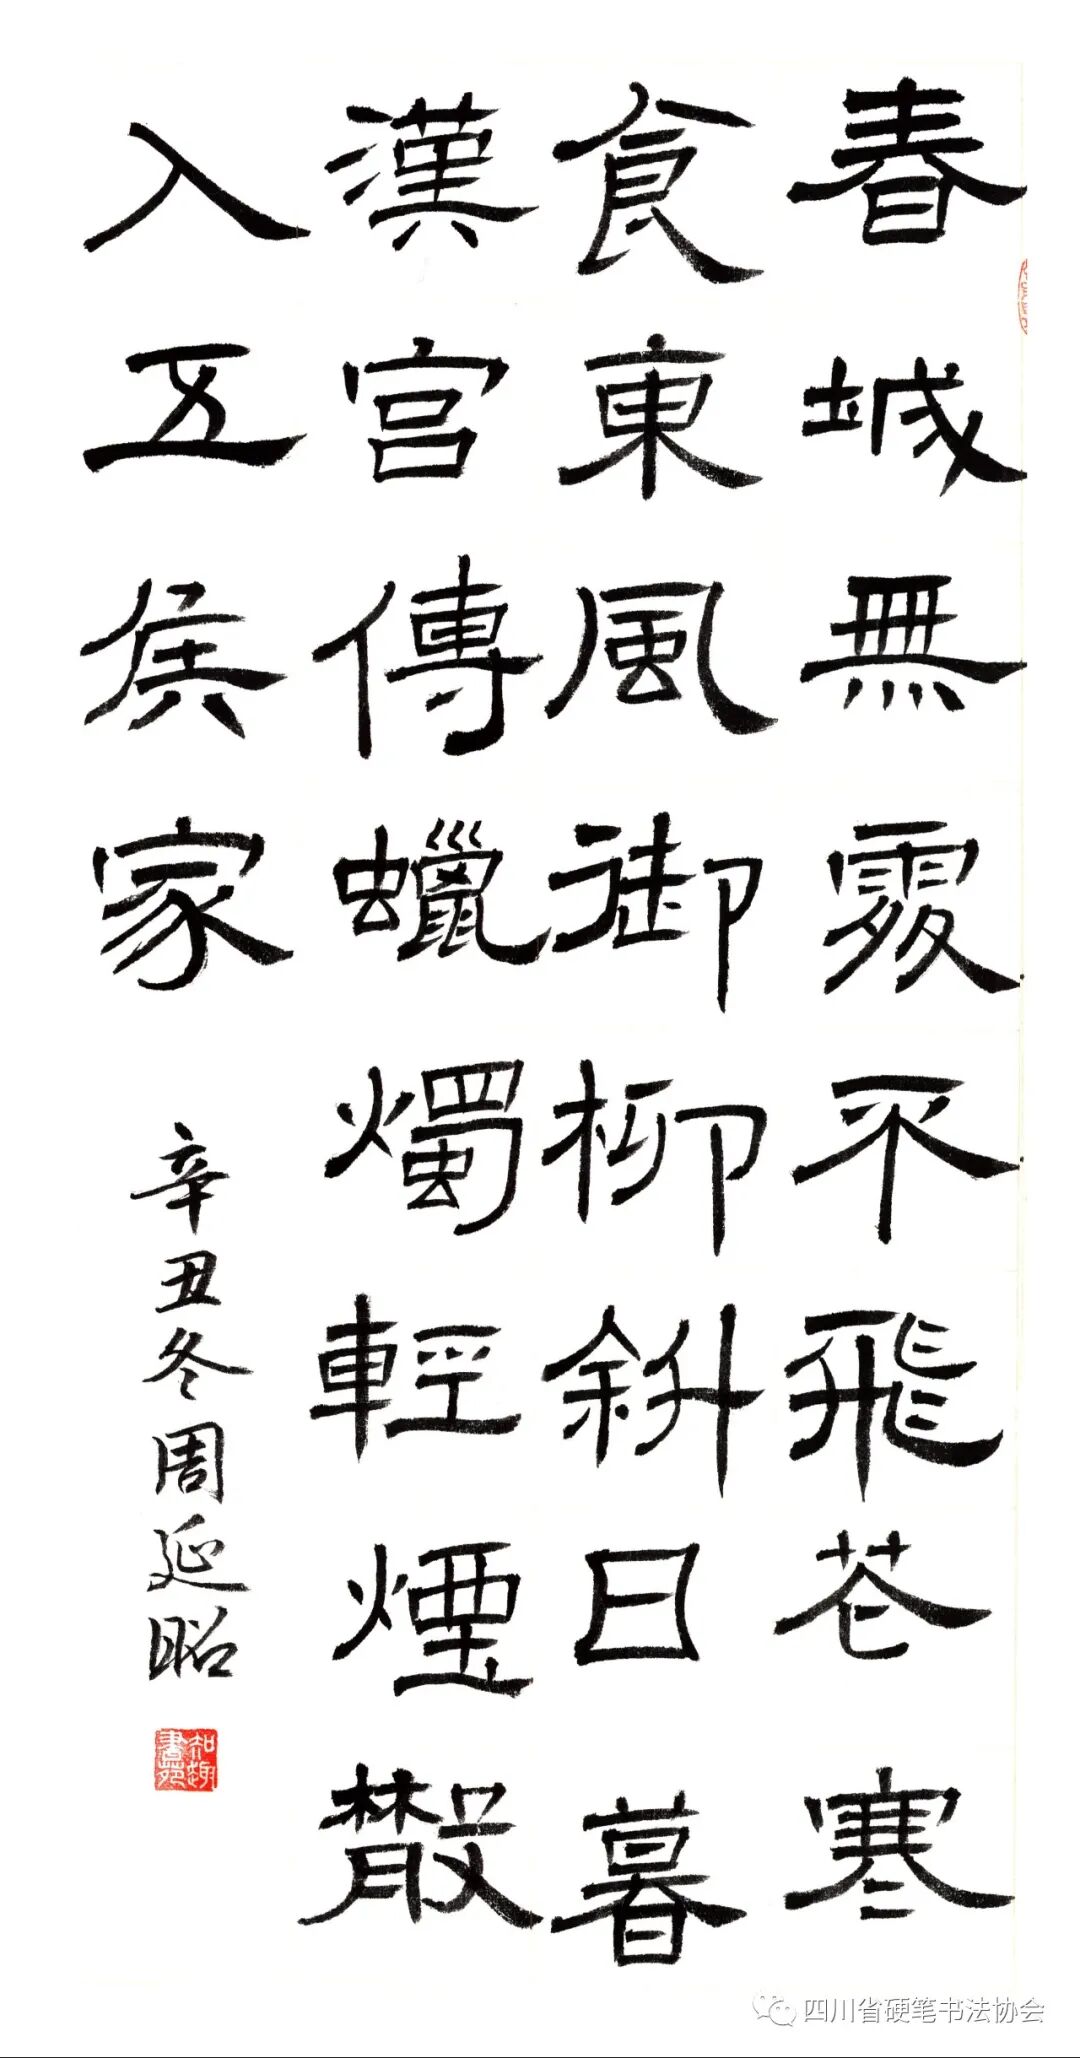 春城無處不飛花寒
食東風御柳斜日暮
漢宮傳蠟燭輕煙散
入五侯家
辛丑冬周延昭
知趣書苑
四川省硬笔书法协会